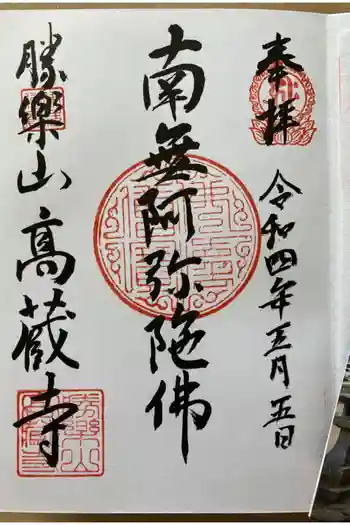 奉拝
令和四年五月五日
南無阿弥陀佛
勝樂山高蔵寺